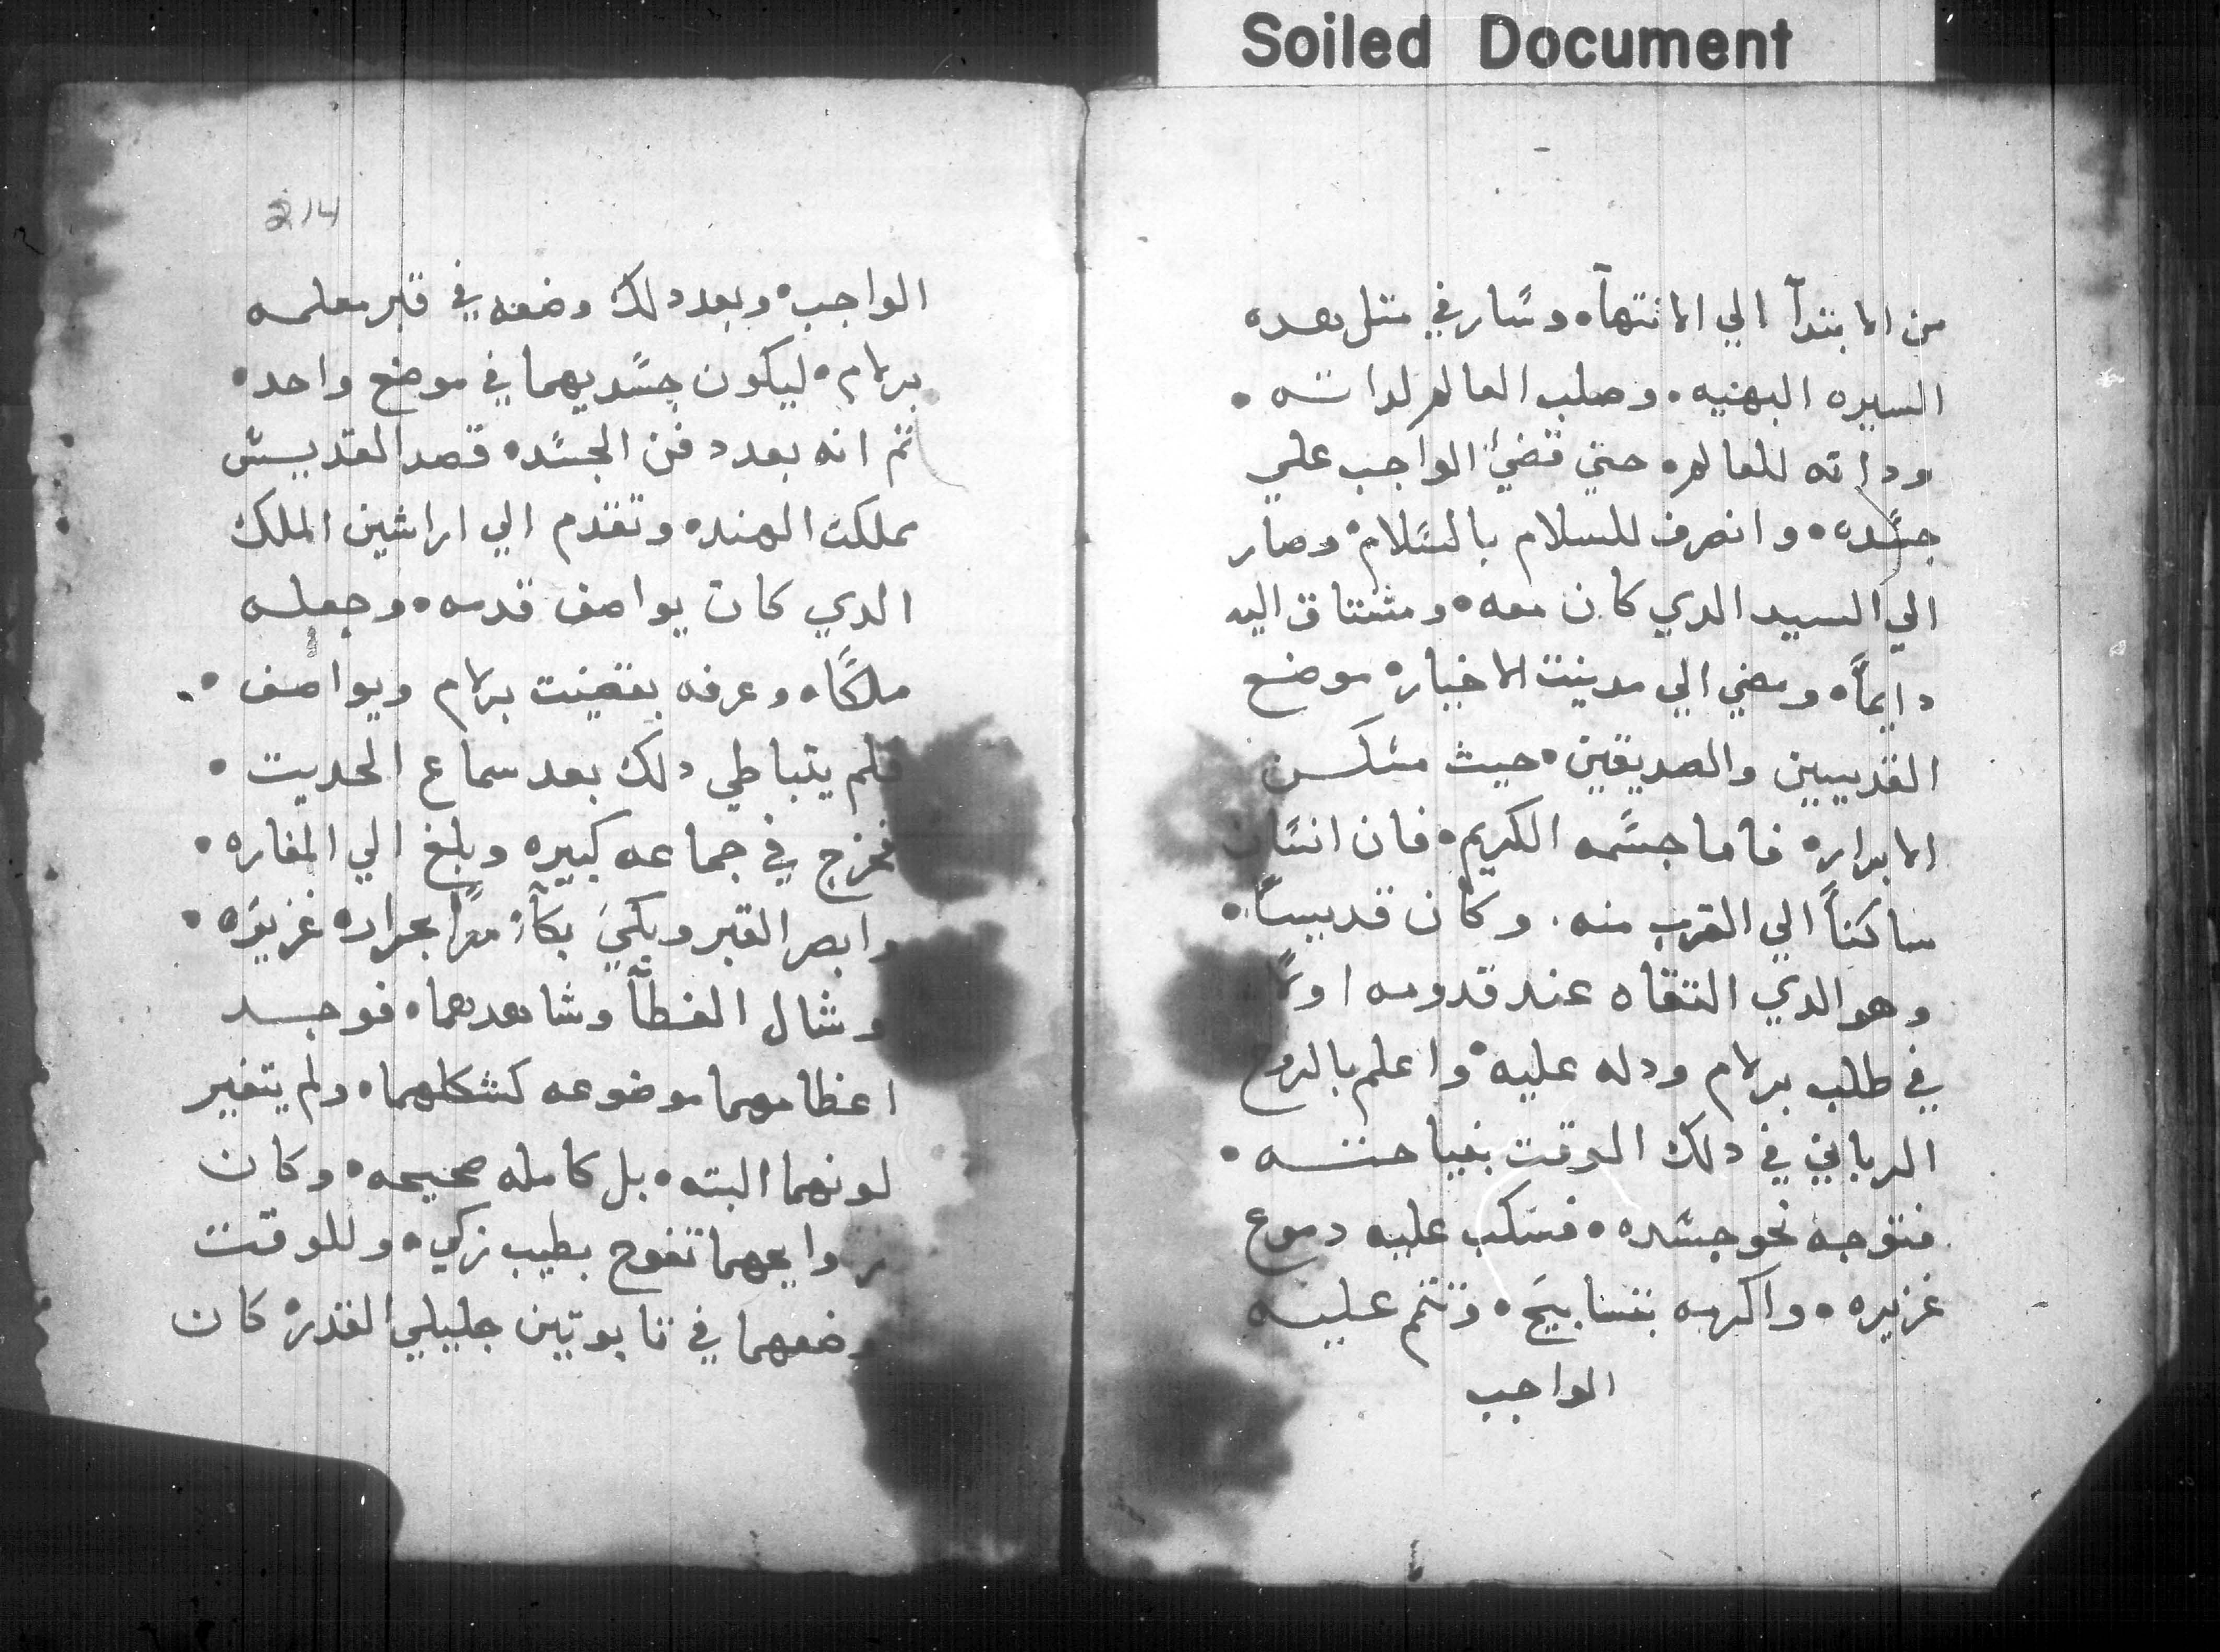 Soiled Document
من الابتدآ الي الانتهآ۰ وسار في متل هده
السيره البهنيه۰ وصلب العالم لداته۰
وداته للعالم۰ حتي قضي الواجب علي
جسده۰ وانصرف للسلام بالسلام۰ وصار
الي السيد الدي كان معه۰ ومشتاق اليه
دايماً۰ ومضي الي مدينت الاخيار۰ موضع
القديسين والصديقين۰ حيث مسكن
الابرار۰ فاما جسمه الكريم۰ فان انسان
ساكناً الي القرب منه۰ وكان قديساً۰
وهو الدي التقاه عند قدومه اولاً
في طلب برلام ودله عليه۰ واعلم بالروح
الرباني في دلك الوقت بنياحته۰
فتوجه نحو جسده۰ فسكب عليه دموع
غزيره۰ واكرمه بتسابيح۰ وتتم عليه
الواجب
214
الواجب۰ وبعد دلك وضعه في قبر معلمه
برلام۰ ليكون جسديهما في موضع واحد۰
تم انه بعد دفن الجسد۰ قصد القديس
مملكت الهند۰ وتقدم الي اراشين الملك
الدي كان يواصف قدمه۰ وجعله
ملكاً۰ وعرفه بقضيت برلام ويواصف۰
فلم يتباطي دلك بعد سماع الحديت۰
فخرج في جماعه كبيره وبلغ الي المغاره۰
وابصر القبر وبكي بكآء مراً بحراره غزيره۰
وشال الغطآ وشاهدهما۰ فوجد
اعظامهما موضوعه كشكلهما۰ ولم يتغير
لونهما البته۰ بل كامله صحيحه۰ وكان
روايحهما تفوح بطيب زكي۰ وللوقت
وضعهما في تابوتين جليلي القدر۰ كان